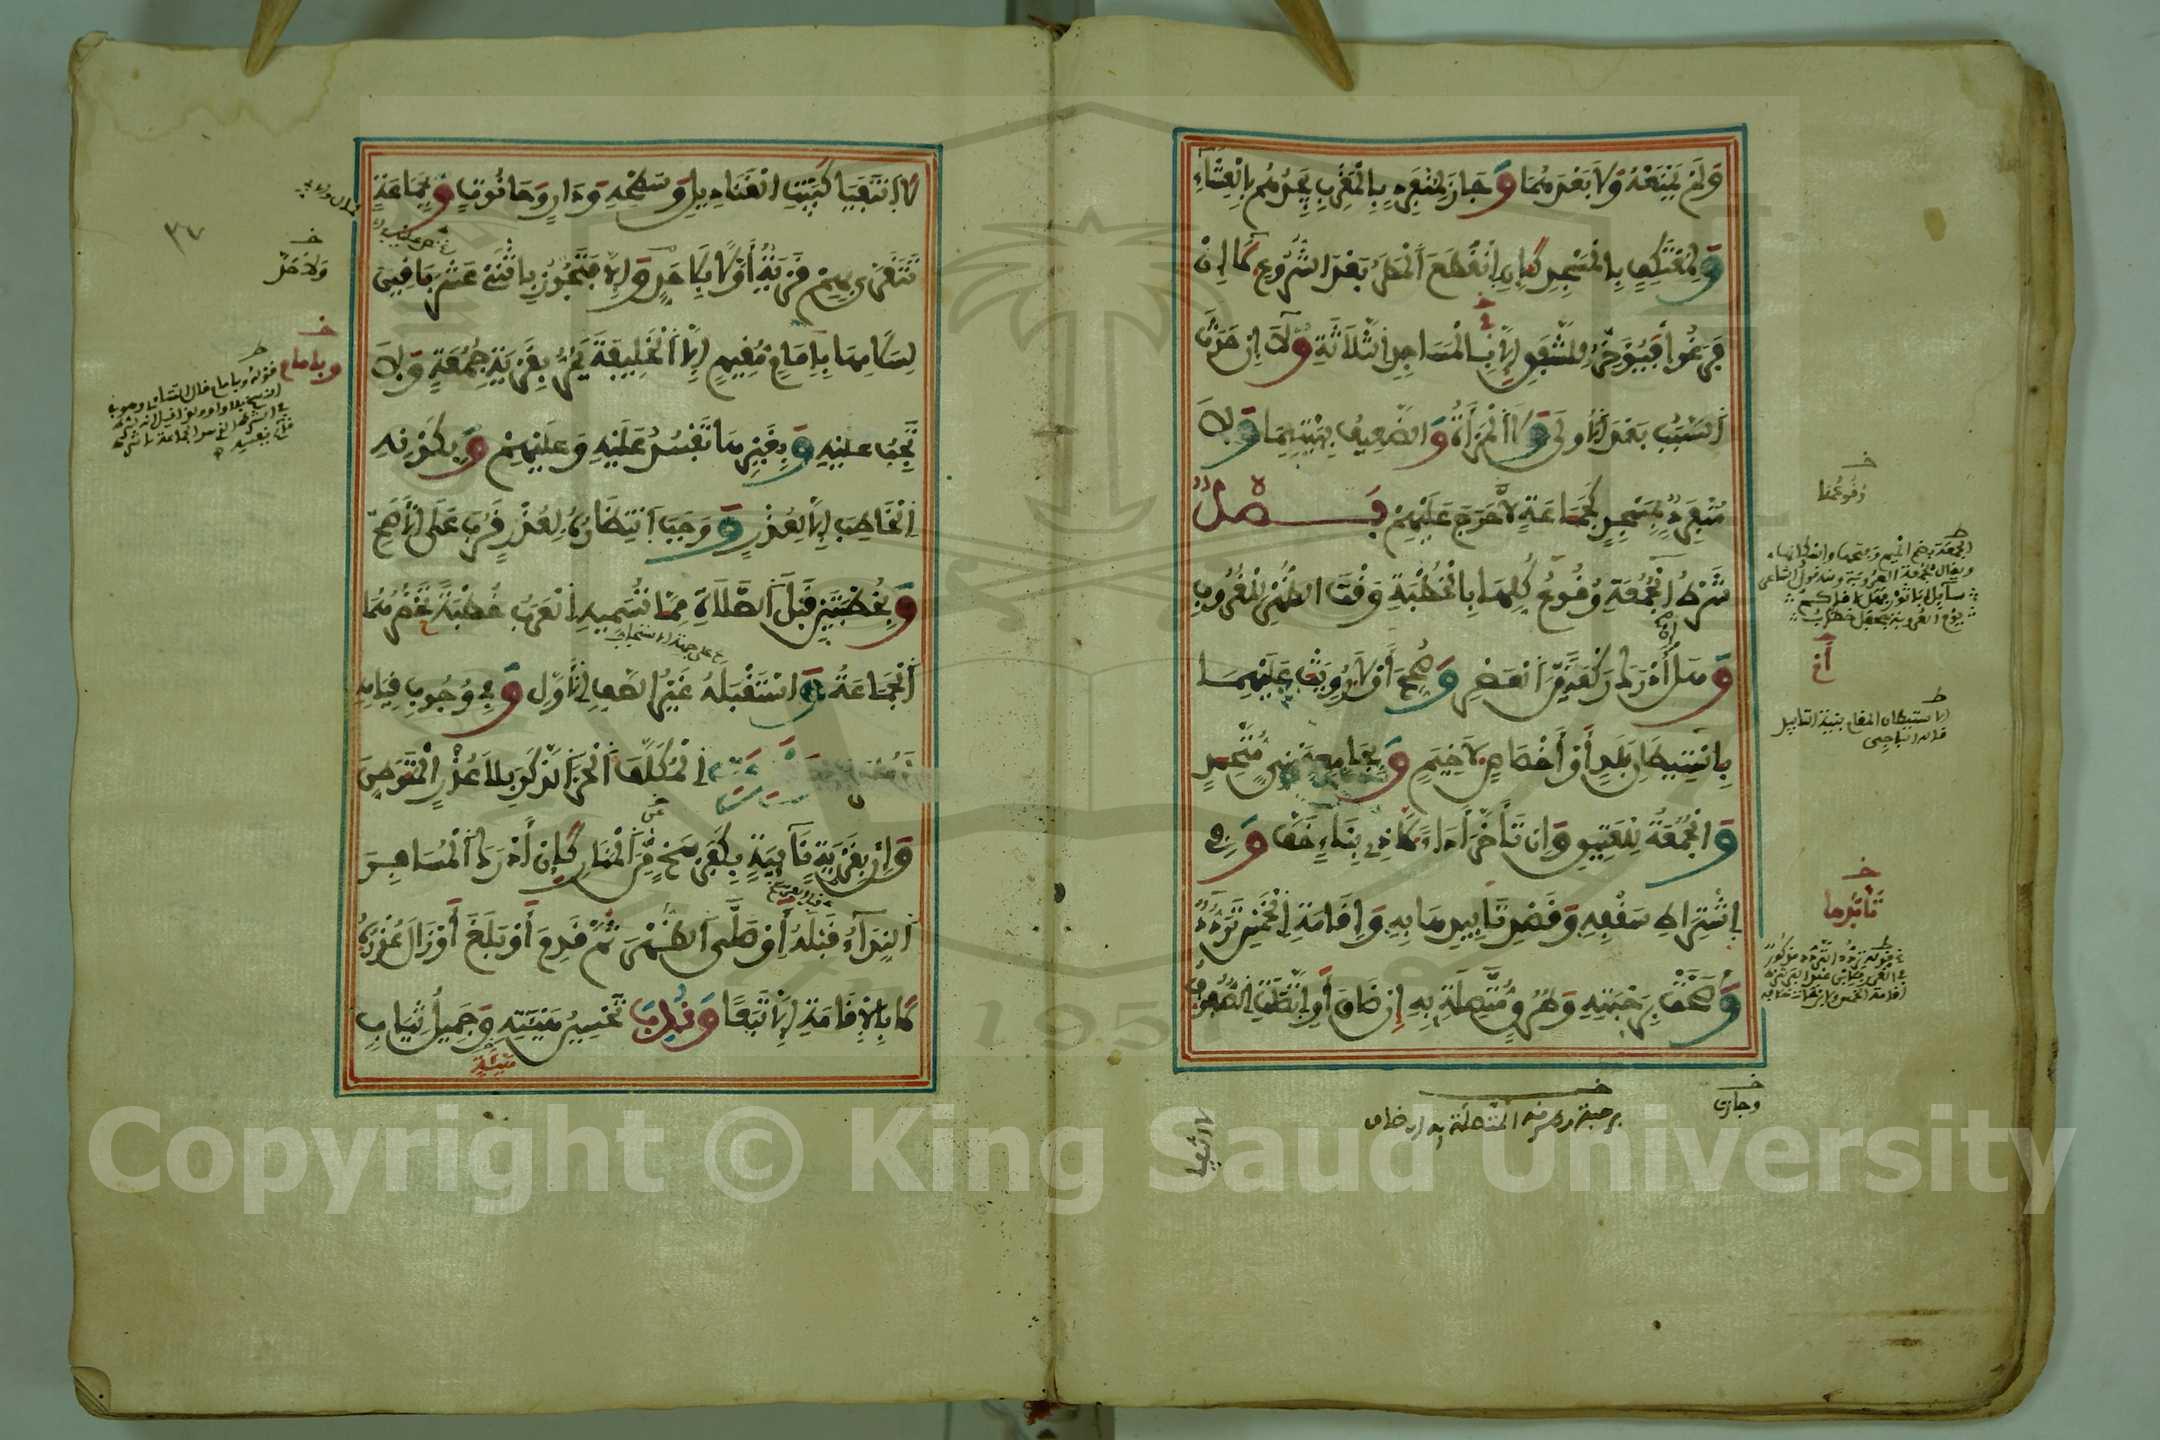 وَلَمْ يَمْنَعْهُ وَلَا بَعْدَهُمَا وَجَازَ لِمُنْفَرِدٍ بِالْمَغْرِبِ يَجِدُهُمْ بِالْعِشَاءِ
وَلِمُعْتَكِفٍ بِالْمَسْجِدِ كَأَنِ انْقَطَعَ الْمَطَرُ بَعْدَ الشُّرُوعِ لَا إِنْ
فَرَغُوا فَيُؤَخَّرُ لِلشَّفَقِ إِلَّا بِالْمَسَاجِدِ الثَّلَاثَةِ وَلَا إِنْ حَدَثَ
السَّبَبُ بَعْدَ الْأُولَى وَلَا الْمَرْأَةُ وَالضَّعِيفُ بِبَيْتِهِمَا وَلَا
مُنْفَرِدٌ بِمَسْجِدٍ كَجَمَاعَةٍ لَا حَرَجَ عَلَيْهِمْ فَصْلٌ
شَرْطُ الْجُمُعَةِ وُقُوعُ كُلِّهَا بِالْخُطْبَةِ وَقْتَ الظُّهْرِ لِلْغُرُوبِ
وَهَلْ إِنْ أَدْرَكَ رَكْعَةً مِنَ الْعَصْرِ وَصُحِّحَ أَوْ لَا رُوِيَتْ عَلَيْهِمَا
بِاسْتِيطَانِ بَلَدٍ أَوْ أَخْصَاصٍ لَا خِيَمٍ وَبِجَامِعٍ مَبْنِيٍّ مُتَّحِدٍ
وَالْجُمُعَةُ لِلْعَتِيقِ وَإِنْ تَأَخَّرَ أَدَاءً لَا فِي بِنَاءٍ خَفَّ وَفِي
اشْتِرَاطِ سَقْفِهِ وَقَصْدِ تَأْبِيدِهَا بِهِ وَإِقَامَةِ الْخَمْسِ تَرَدُّدٌ
وَصَحَّتْ بِرَحْبَتِهِ وَطُرُقٍ مُتَّصِلَةٍ بِهِ إِنْ ضَاقَ أَوِ اتَّصَلَتِ الصُّفُوفُ
وقوعها
أخ
تأبدها
وجازت
برحبته وطرقه المتصلة به إن ضاق
لا انتفيا
لَا انْتَفَيَا كَبَيْتِ الْقَنَادِيلِ وَسَطْحِهِ وَدَارٍ وَحَانُوتٍ وَبِجَمَاعَةٍ
تَتَقَرَّى بِهِمْ قَرْيَةٌ أَوَّلًا بِلَا حَدٍّ وَإِلَّا فَتَجُوزُ بِاثْنَيْ عَشَرَ بَاقِينَ
لِسَلَامِهَا بِإِمَامٍ مُقِيمٍ إِلَّا الْخَلِيفَةَ يَمُرُّ بِقَرْيَةِ جُمُعَةٍ وَلَا
تَجِبُ عَلَيْهِ وَبِغَيْرِهَا تَفْسُدُ عَلَيْهِ وَعَلَيْهِمْ وَبِكَوْنِهِ
الْخَاطِبَ إِلَّا لِعُذْرٍ وَوَجَبَ انْتِظَارُهُ لِعُذْرٍ قَرُبَ عَلَى الْأَصَحِّ
وَبِخُطْبَتَيْنِ قَبْلَ الصَّلَاةِ مِمَّا تُسَمِّيهِ الْعَرَبُ خُطْبَةً تَحْضُرُهُمَا
الْجَمَاعَةُ وَاسْتَقْبَلَهُ غَيْرُ الصَّفِّ الْأَوَّلِ وَفِي وُجُوبِ قِيَامِهِ
الْمُكَلَّفَ الْحُرَّ الذَّكَرَ بِلَا عُذْرٍ الْمُتَوَطِّنَ
وَإِنْ بِقَرْيَةٍ نَائِيَةٍ بِكَفَرْسَخٍ مِنَ الْمَنَارِ كَإِنْ أَدْرَكَ الْمُسَافِرَ
النِّدَاءُ قَبْلَهُ أَوْ صَلَّى الظُّهْرَ ثُمَّ قَدِمَ أَوْ بَلَغَ أَوْ زَالَ عُذْرُهُ
لَا بِالْإِقَامَةِ إِلَّا تَبَعًا وَنُدِبَ تَحْسِينُ هَيْئَتِهِ وَجَمِيلُ ثِيَابٍ
هيئة
ولا حد
وبإمام
٣٧
1957
Copyright © King Saud University